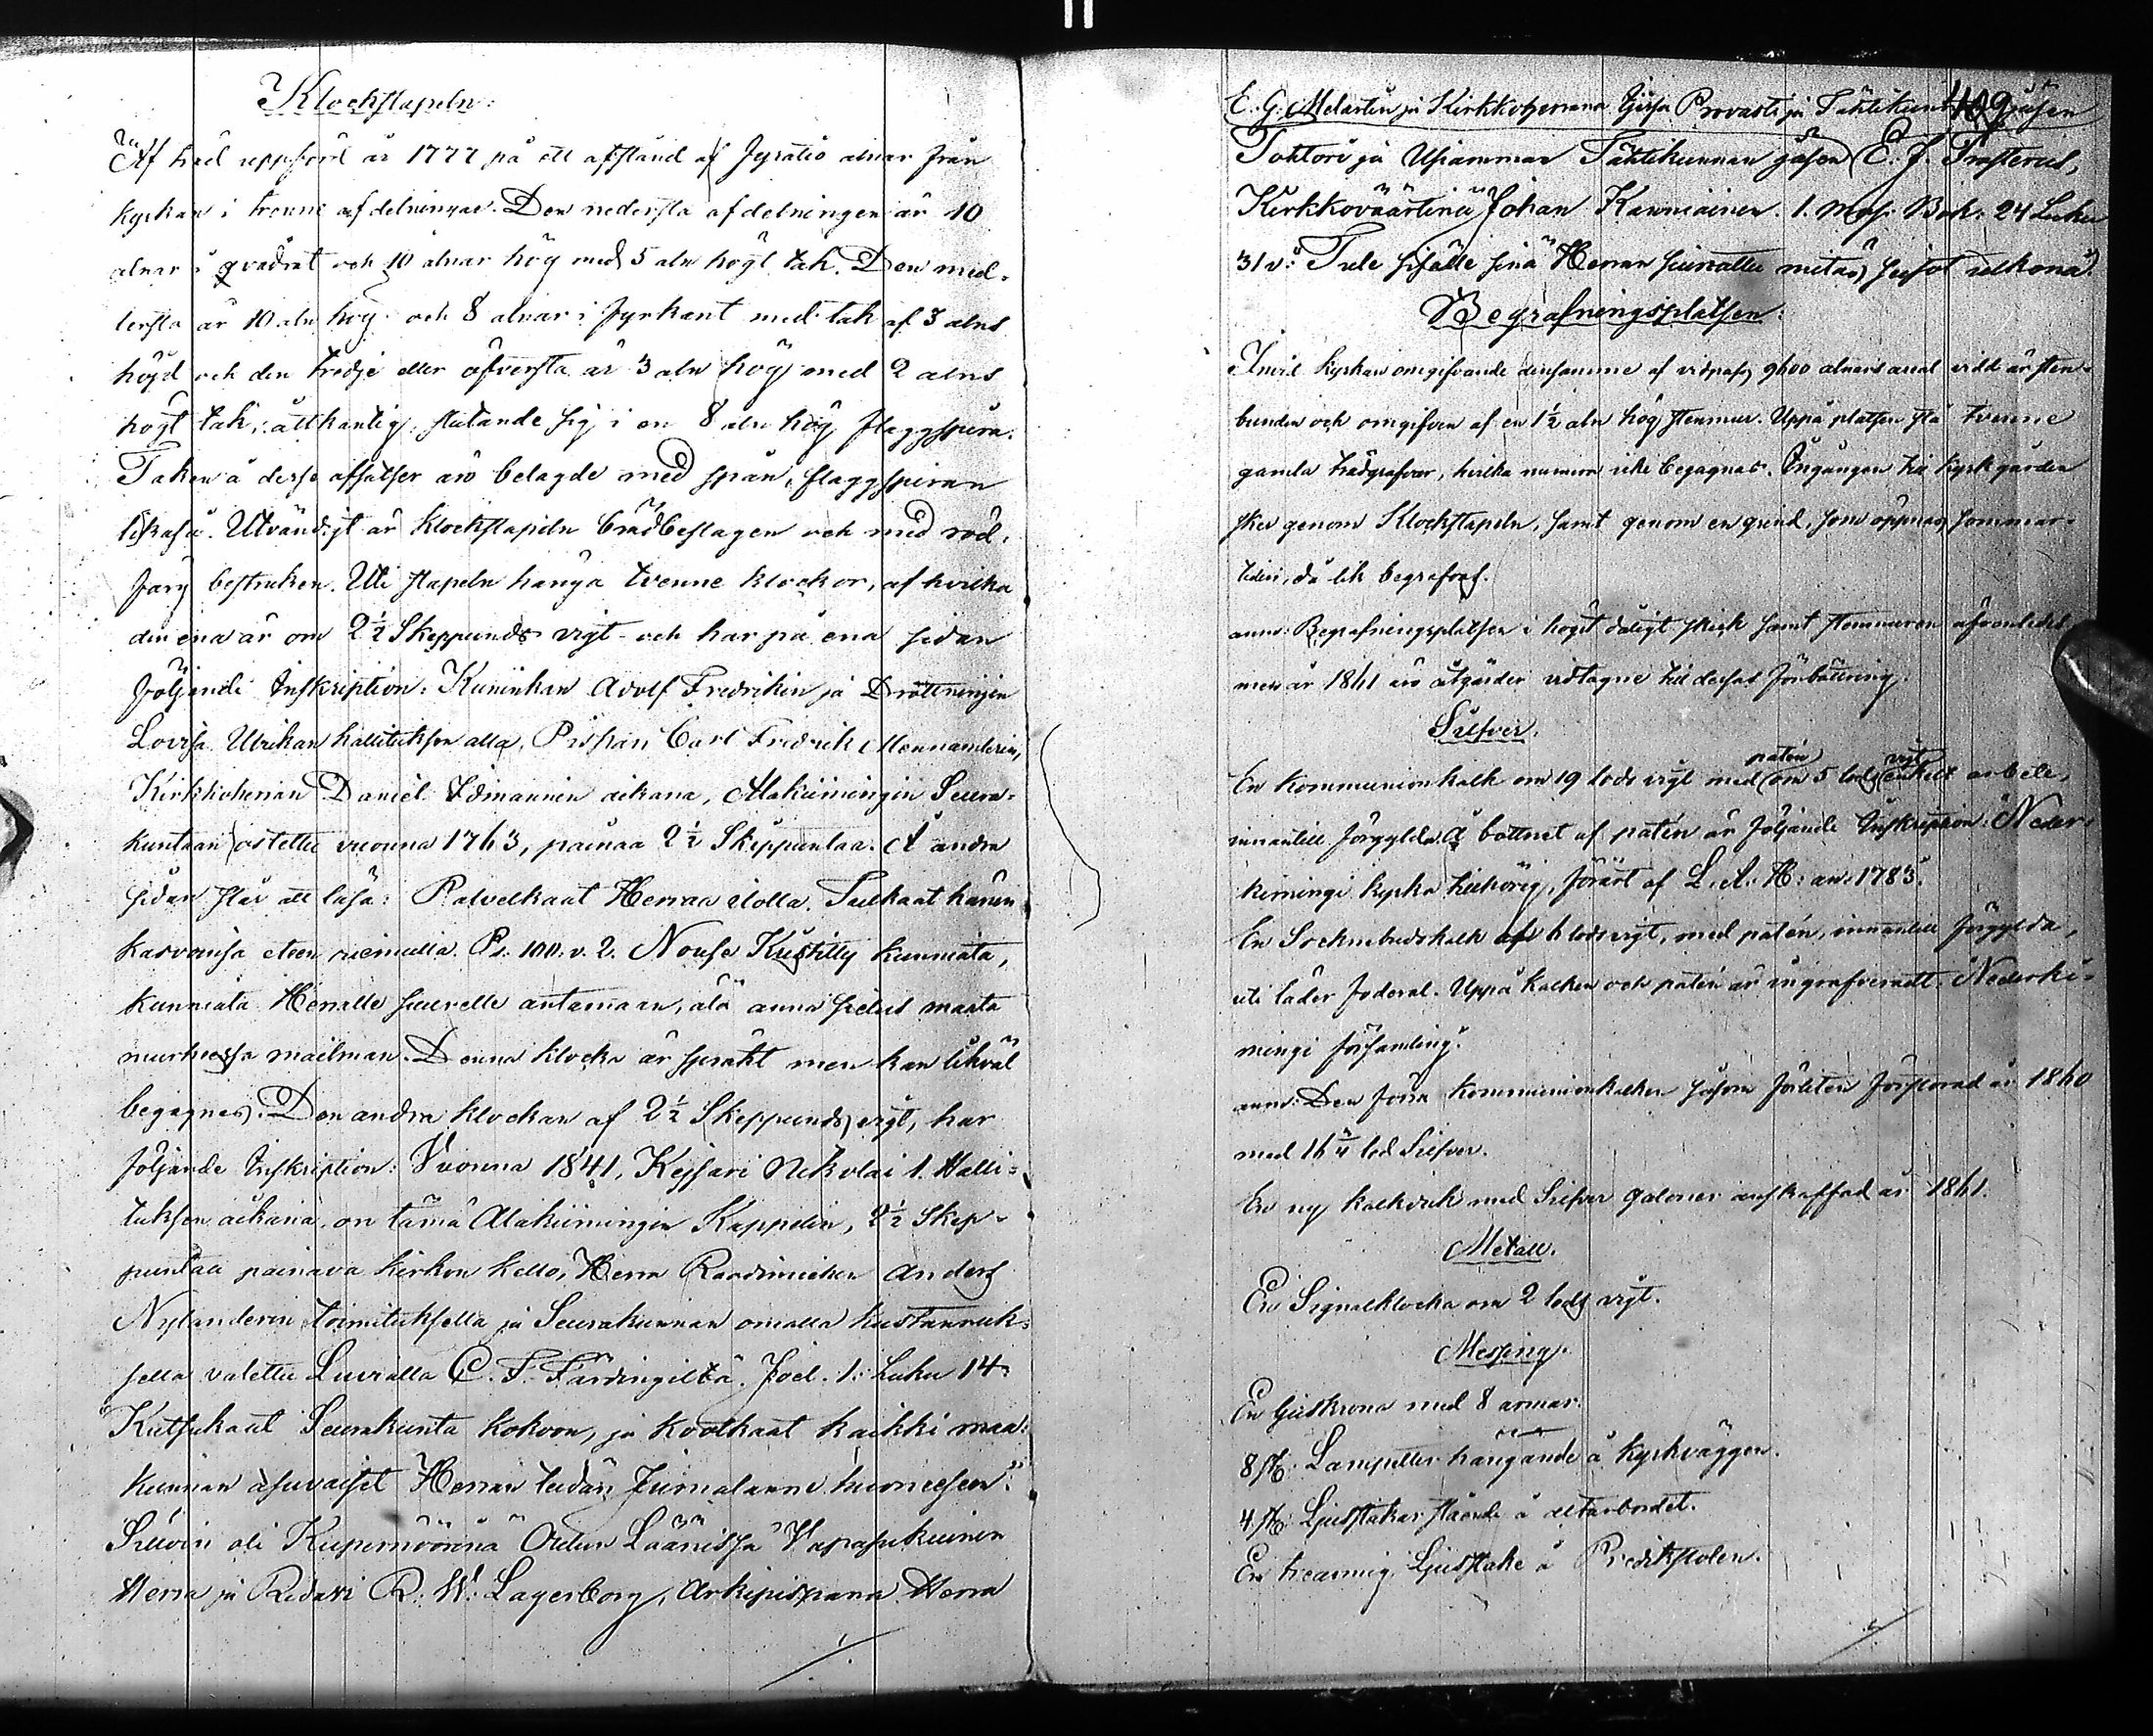 Klockstapeln:
Är af träd uppförd år 1777 på ett afstånd af fyratio alnar från
kyrkan i trenne afdelningar. Den nedersta afdelningen är 10
alnar i qvadrat och 10 alnar hög med 5 aln högt tak. Den med-
lersta är 10 aln hög och 8 alnar i fyrkant med tak af 3 alns
höjd och den tredje eller öfversta är 3 aln hög med 2 alns
högt tak, åttkantig, slutande sig i en 8 aln hög flaggspira.
Taken å desse afsatser äro belagde med spån, flaggspiran
likaså. Utvändigt är klockstapeln brädbeslagen och med röd-
färg bestruken. Uti stapeln hänga tvenne klockor, af hvilka
den ena är om 2½ Skeppunds vigt och har på ena sidan
följande Inskription: Kuninkan Adolf Fredrikin ja Drottningin
Lovisa Ulrikan hallituksen alla, Pispan Carl Fredrik Mennanderin,
Kirkkoherran Daniel Idmannin aikana, Alakiimingin Seura-
kuntaan ostettu vuonna 1763, painaa 2½ Skeppuntaa. Å andra
sidan står att läsa: Palvelkaat Herraa ilolla. Tulkaat hänen
kasvoinsa eteen riemulla. Ps. 100. v. 2. Nouse Kristitty kunniata,
kunniata Herralle suurelle antamaan, älä anna sielus maata
murheessa mailman. Denna klocka är spräkt men kan likväl
begagnas. Den andra klockan af 2½ Skeppunds vigt, har
följande Inskription: Vuonna 1841, Keisari Nikolai 1. Halli-
tuksen aikana, on tämä Alakiimingin Kappelin, 2½ Skep-
puntaa painava kirkon kello, Herra Raadimiehen Anders
Nylanderin toimituksella ja Seurakunnan omalla kustannuk-
sella valettu Luvialla C. F. Färdingiltä. Joel. 1: Luku 14:
"Kutsukaat Seurakunta kokoon, ja kootkaat kaikki maa-
kunnan asuvaiset Herran teidän Jumalanne huoneesen".
Silloin oli Kupernöörinä Oulun Läänissä Vapasukuinen
Herra ja Ridari R. W. Lagerborg, Arkipispana Herra
409
E. G. Melartin ja Kirkkoherrana Tjrsa Provasti ja Tähtikunnan jäsen
Tohtori ja Usiamman Tähtikunnan jäsen E. J. Frosterus,
Kirkkoväärtinä Johan Kanniainen. 1. Mos: Bok: 24 Luku
31 v: "Tule sisälle sinä Herran siunattu mitäs seisot ulkona".
Begrafningsplatsen:
Invid kyrkan omgifvande densamma af vidpass 9600 alnars areal vidd är sten-
bunden och omgifven af en 1½ aln hög stenmur. Uppå platsen stå tvenne
gamla trädgrafvar, hvilka numera icke begagnas. Ingången till kyrkgården
sker genom Klockstapeln, samt genom en grind, som öppnas sommar-
tiden, då lik begrafvas.
anm: Begrafningsplatsen i högst dåligt skick samt stenmuren
men år 1861 äro åtgärder vidtagne till dessas förbättring.
Silfver.
En Kommunionkalk om 19 lods vigt med patén om 5 lods vigt enkelt arbete,
innantill förgylda. Å bottnet af patén är följande Inskription: "Neder-
kimingi kyrka tillhörig, förärt af L. A. H: an: 1783".
En Sockenbudskalk af 6 lods vigt, med patén, innantill förgylda,
uti läder foderal. Uppå kalken och patén är ingrafveradt: "Nederki-
mingi församling".
anm: Den förra Kommunionkalken såsom förliten förstorad år 1860
med 16¾ lod Silfver.
En ny kalkduk med Silfver galoner anskaffad år 1861.
Metall.
En Signalklocka om 2 lods vigt.
Messing.
En ljuskrona med 8 armar.
8 st: Lampetter hängande å kyrkväggen.
4 st: Ljusstakar stående å altarbordet.
En trearmig Ljusstake å Predikstolen.